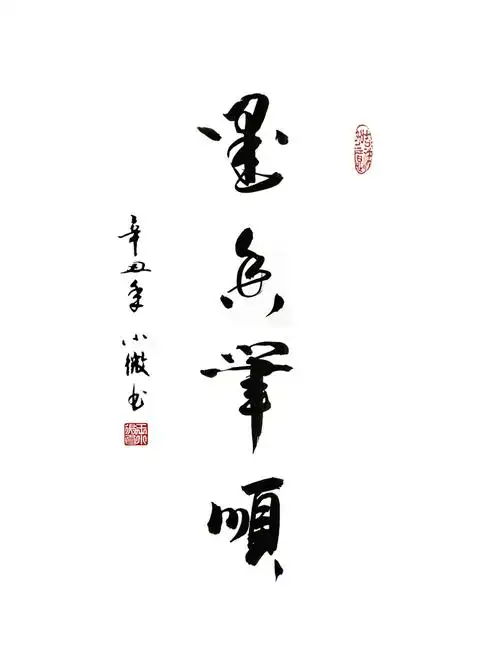 墨香筆順
辛丑年 小微书